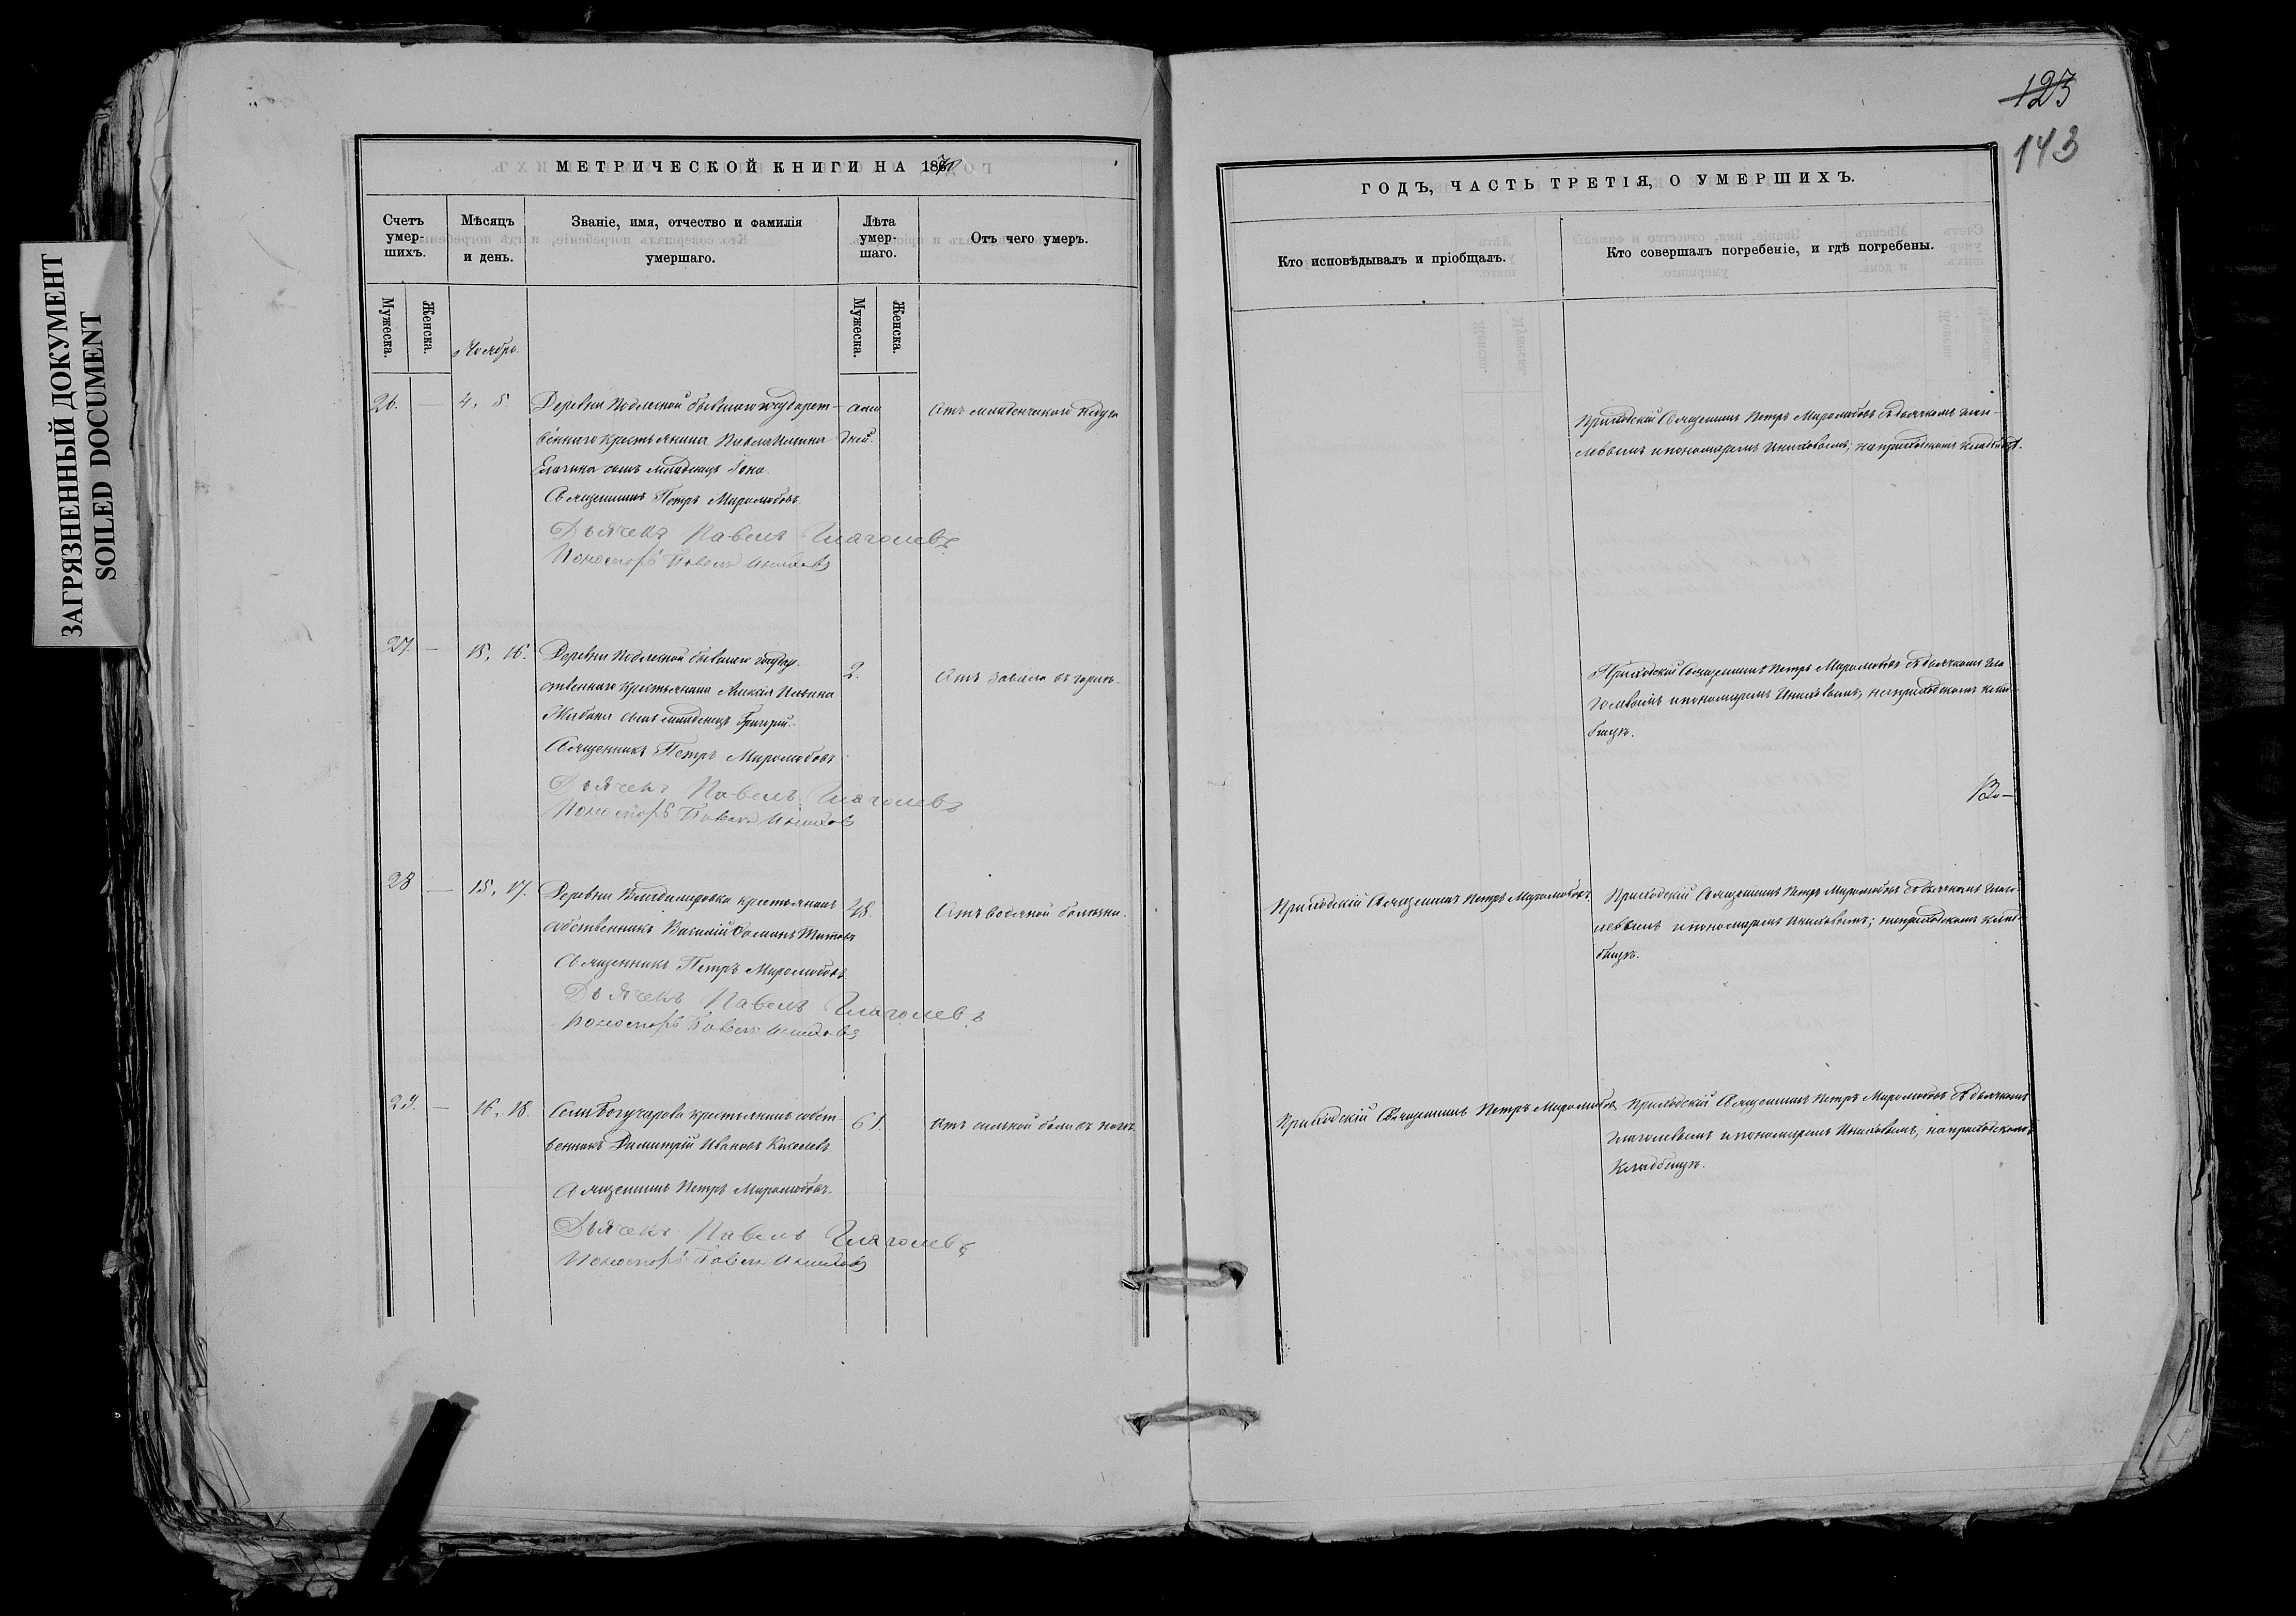 ЗАГРЯЗНЕННЫЙ ДОКУМЕНТ
SOILED DOCUMENT
МЕТРИЧЕСКОЙ КНИГИ НА 1870
Счетъ умер-шихъ.
Мѣсяцъ и день.
Званіе, имя, отчество и фамилія умершаго.
Лѣта умер-шаго.
Отъ чего умеръ.
Мужеска.
Женска.
Мужеска.
Женска.
Ноябрь.
26. — 4. 5.
Деревни Подлесной бывшаго государст-
веннаго крестьянина Павла Ильина
сынъ младенецъ
Священникъ Петръ Миролюбовъ.
Дьячекъ Павелъ Глаголевъ
Пономарь Павелъ
дней.
Отъ младенческаго недуга
27. — 15. 16.
Деревни Подлесной бывшаго государ-
ственнаго крестьянина Алексія Ильина
сынъ младенецъ Григорій.
Священникъ Петръ Миролюбовъ
Дьячекъ Павелъ Глаголевъ
Пономарь Павелъ
2.
Отъ завала въ горлѣ.
28 — 15. 17.
Деревни Владимировки крестьянинъ
собственникъ Василій Титовъ
Священникъ Петръ Миролюбовъ.
Дьячекъ Павелъ Глаголевъ
Пономарь Павелъ
48.
Отъ водяной болѣзни.
29. — 16. 18.
Села Богучарова крестьянинъ собст-
венникъ Димитрій Ивановъ Киселевъ
Священникъ Петръ Миролюбовъ.
Дьячекъ Павелъ Глаголевъ
Пономарь Павелъ
61.
Отъ сильной боли въ ногѣ.
123
143
ГОДЪ, ЧАСТЬ ТРЕТІЯ, О УМЕРШИХЪ.
Кто исповѣдывалъ и пріобщалъ.
Кто совершалъ погребеніе, и гдѣ погребены.
Приходскій Священникъ Петръ Миролюбовъ съ дьячкомъ Глаго-
левымъ и пономаремъ на приходскомъ кладбищѣ.
Приходскій Священникъ Петръ Миролюбовъ съ дьячкомъ Гла
голевымъ и пономаремъ на приходскомъ клад-
бищѣ.
Приходскій Священникъ Петръ Миролюбовъ.
Приходскій Священникъ Петръ Миролюбовъ съ дьячкомъ Глаго-
левымъ и пономаремъ на приходскомъ клад-
бищѣ.
Приходскій Священникъ Петръ Миролюбовъ
Приходскій Священникъ Петръ Миролюбовъ съ дьячкомъ
Глаголевымъ и пономаремъ на приходскомъ
Кладбищѣ.